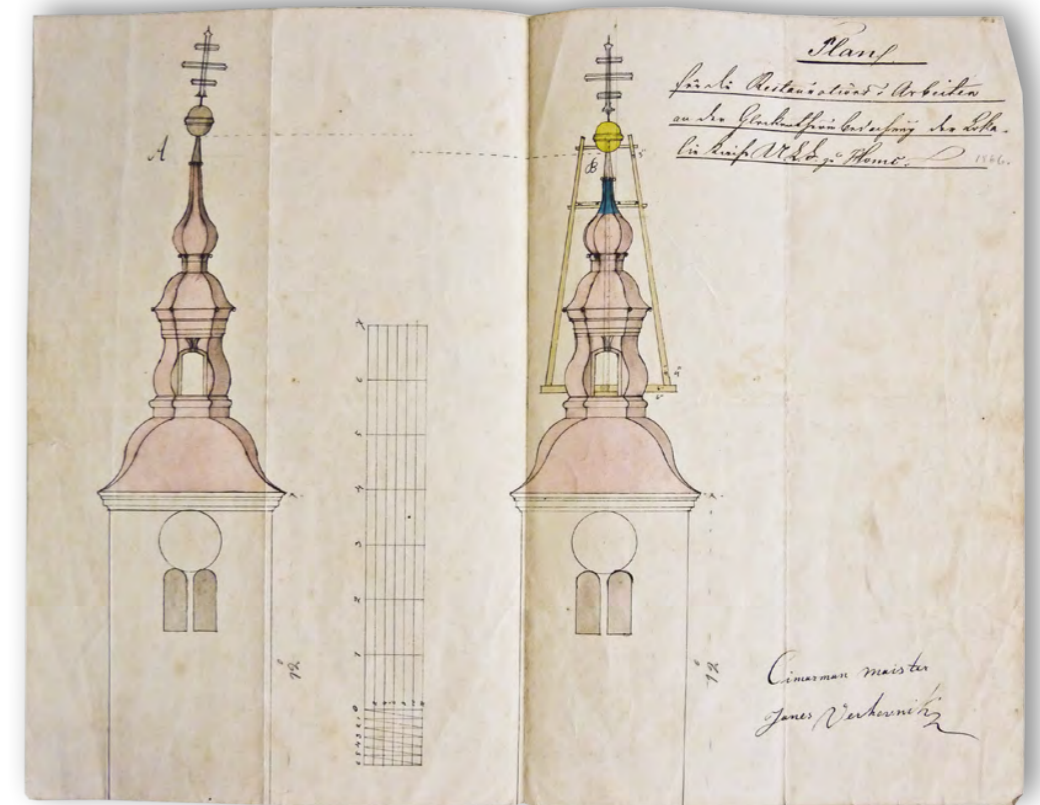 Plan
für die Restaurations-Arbeiten
an der Glockenthurmbedachung der Loka-
lie Kirche zu Homc.
1866.
A
B
7
6
5
4
3
2
1
0
12
12
Cimerman maister
Janes Verhovnik